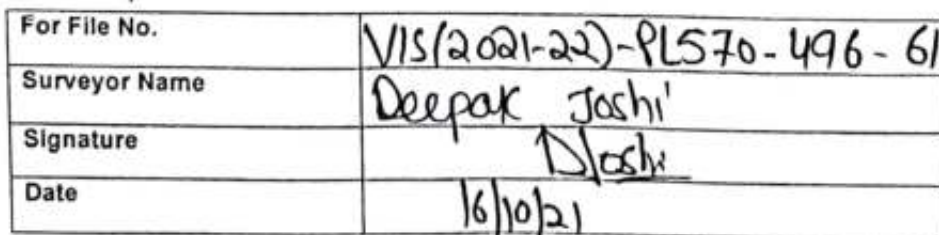 For File No. VIS(2021-22)-PL570-496-61
Surveyor Name Deepak Joshi
Signature DJoshi
Date 16/10/21